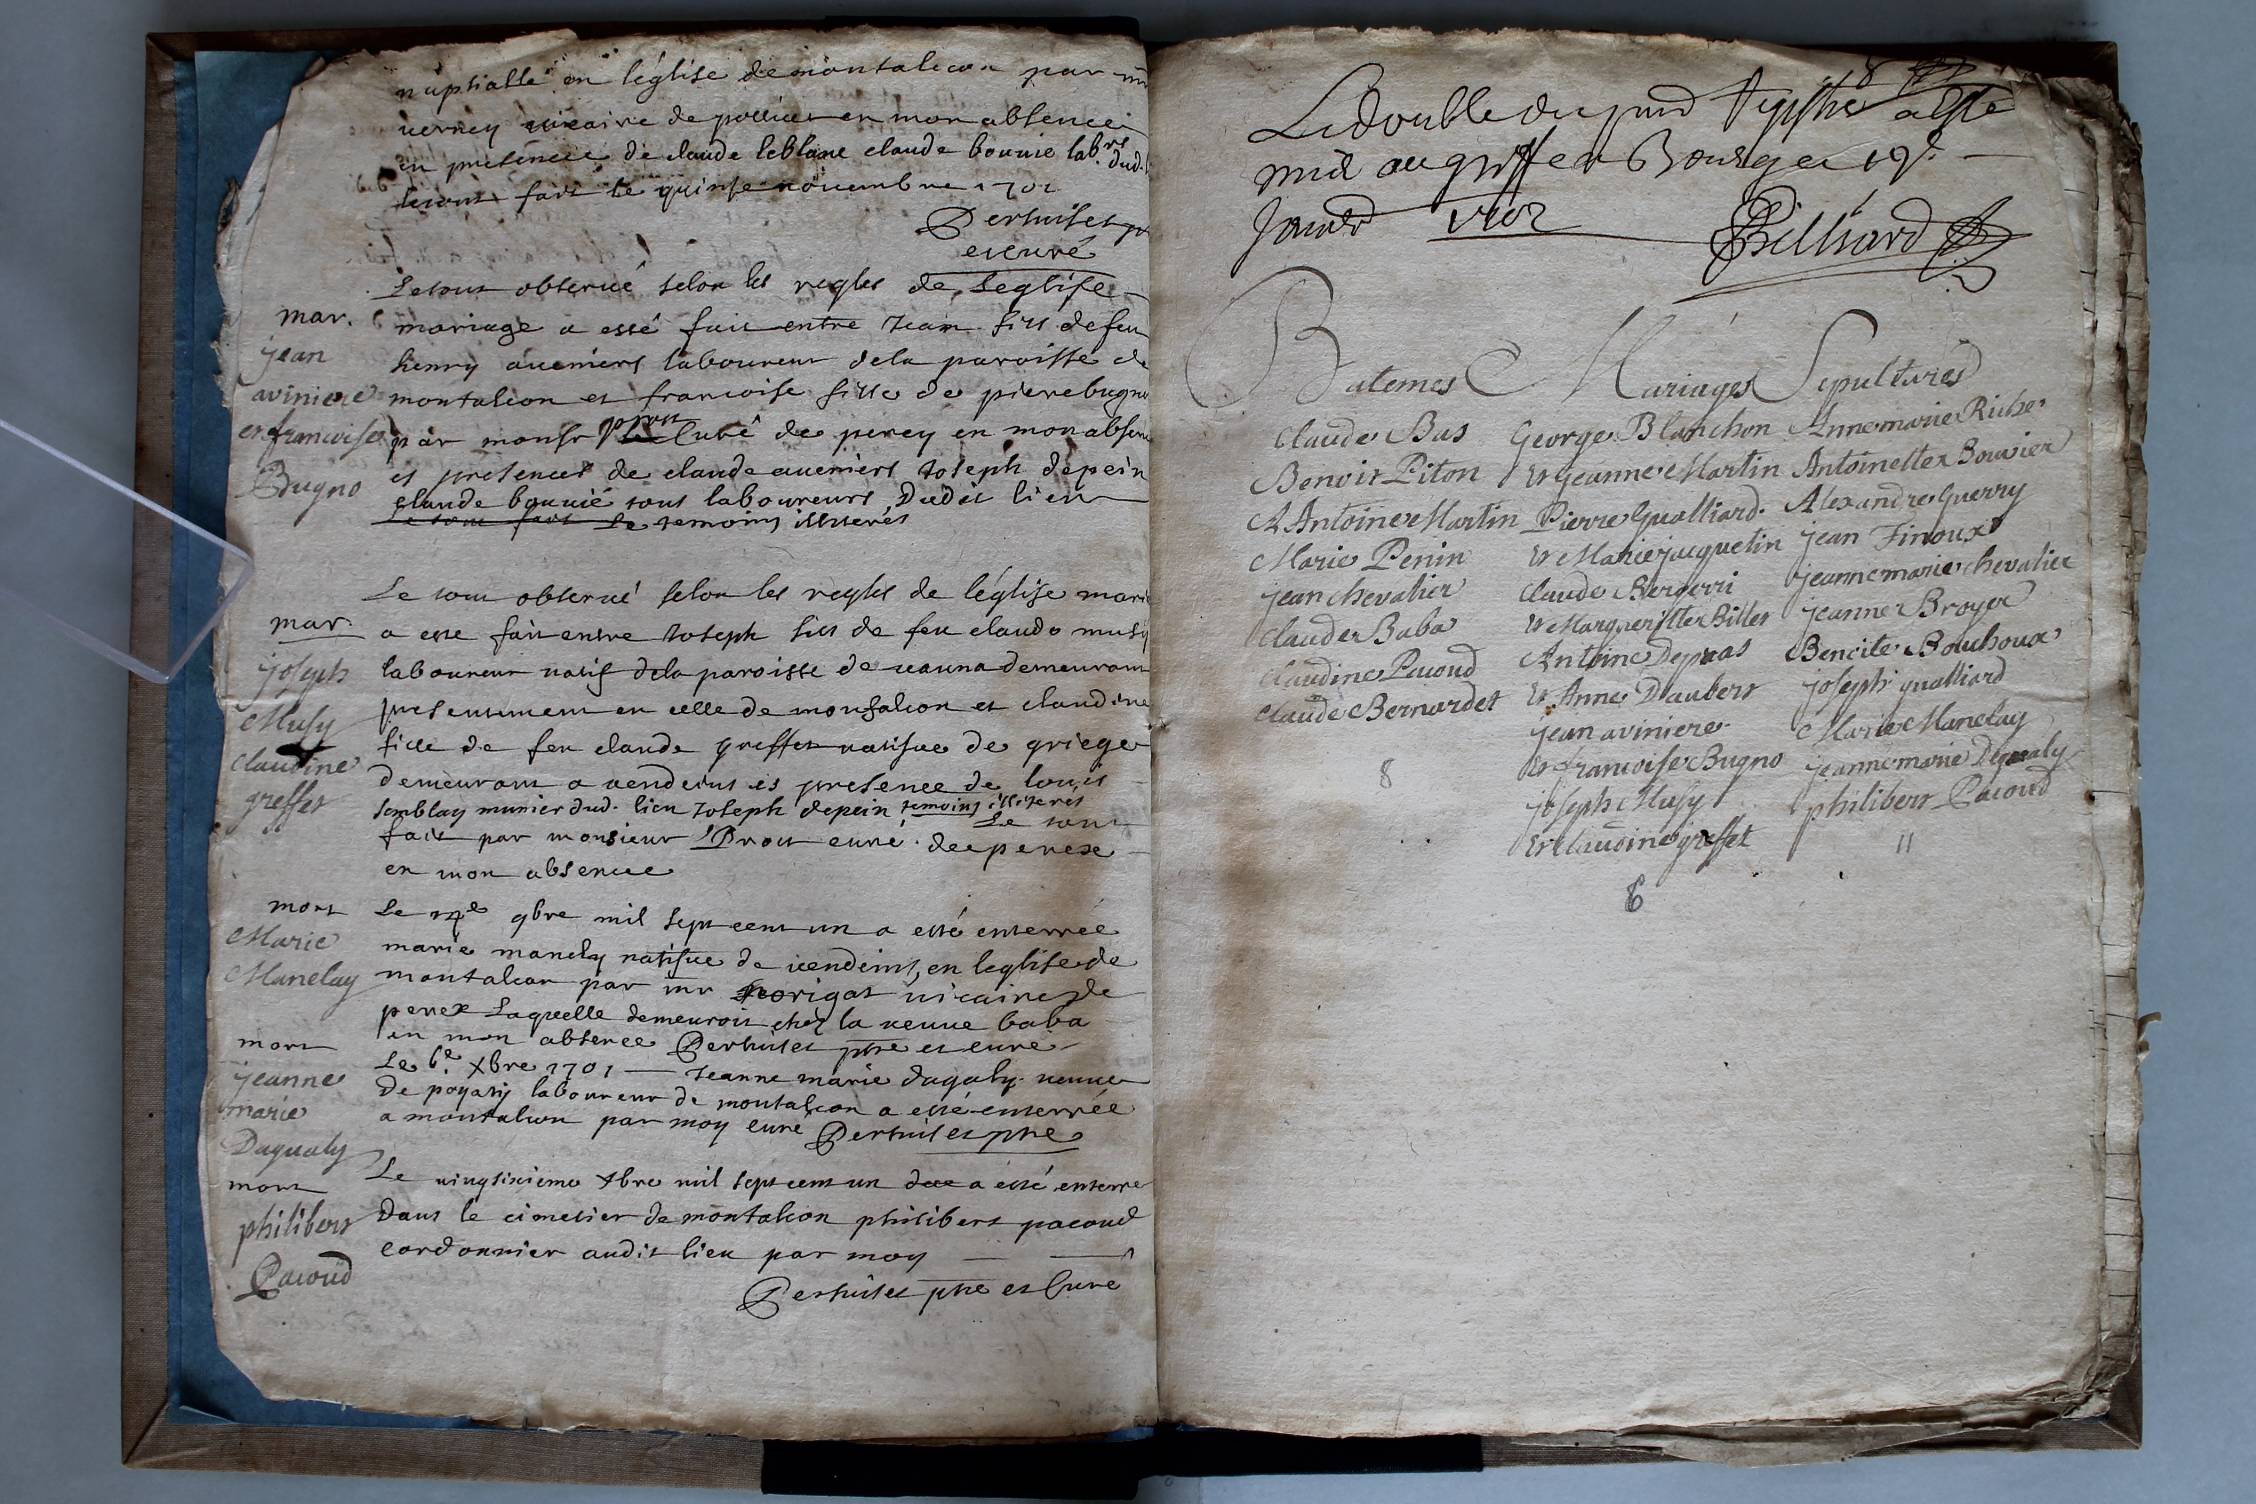 nuptialle en léglise de montalcon par mr
verney vicaire de pollieu en mon absence
en presence de claude leblanc claude bouvie labrs dud.
le tout fait le quinse novembre 1701
Perhuiset p
et curé
Le tout observé selon les regles de leglise
mar.
mariage a esté fait entre Jean fils de feu
jean
henry aveniers laboureur de la paroisse de
aviniere
montalcon et francoise fille de pierre bugno
et francoise
par monsr prost Curé de perey en mon absence
Bugno
et presences de claude aveniers Joseph depein
claude bouvié tous laboureurs Dudit lieu
le tout fait Le temoins illiterés
Le tout observé selon les regles de léglise mari
mar.
a esté fait entre Joseph fils de feu claude musy
joseph
laboureur natif de la paroisse de vauna demeurant
Musy
presentement en celle de monfalcon et claudine
claudine
fille de feu claude greffet natifve de griege
greffet
demeurant a vendeins es presence de louis
semblay munier dud. lieu Joseph depein temoins illiterés
Le tout
fait par monsieur Prost curé de perex
en mon absence
mort
Le 9bre mil sept cent un a esté enterrée
Marie
marie manely natifve de vendeins, en leglise de
Manelay
montalcon par mr morigat vicaire de
perex Laquelle demeuroit chez la veuve baba
en mon absence Perhuiset ptre et curé
mort
Le 6e. Xbre 1701 — Jeanne marie dagaly veuve
jeanne
De pogasy laboureur de montalcon a esté enterrée
marie
a montalcon par moy curé Perhuiset ptre
Dagualy
mort
Le vingtsixieme Xbre mil sept cent un a esté enterre
philibert
Dans le cimetier de montalcon philibert pacoud
cordonnier audit lieu par moy
Pacoud
Perhuiset ptre et Curé
8
Le double du pnt Registre a esté
mis au greffe a Bourg ce 19e.
Janvr 1702
Billiard
Batemes Mariages Sepultures
Claude Bas George Blanchon Anne marie Riche
Benoit Piton et jeanne Martin Antoinette Bouvier
Antoine Martin Pierre Gualliard Alexandre Guerry
Marie Penin et Marie jacquelin jean Finoux
jean chevalier Claude Bergerri jeanne marie chevalier
Claude Baba et Marguerite Billet jeanne Broyer
Claudine Pacoud Antoine Depras Benoite Bouhoux
Claude Bernardet et Anne Daubert joseph gualliard
jean aviniere Marie Manelay
8
et francoise Bugno jeanne marie Dagualy
joseph Musy philibert Pacoud
et Claudine greffet 11
6